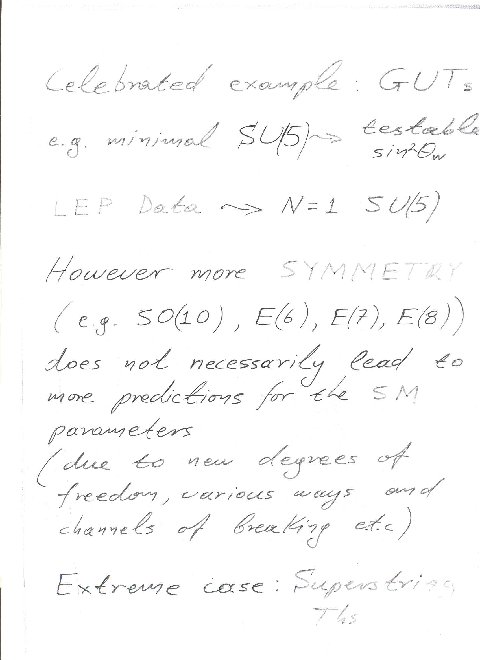 Celebrated example: GUTs
e.g. minimal SU(5) ⇝ testable
sin²θw
LEP Data ⇝ N=1 SU(5)
However more SYMMETRY
(e.g. SO(10), E(6), E(7), E(8))
does not necessarily lead to
more predictions for the SM
parameters
(due to new degrees of
freedom, various ways and
channels of breaking etc)
Extreme case: Superstring
Ths